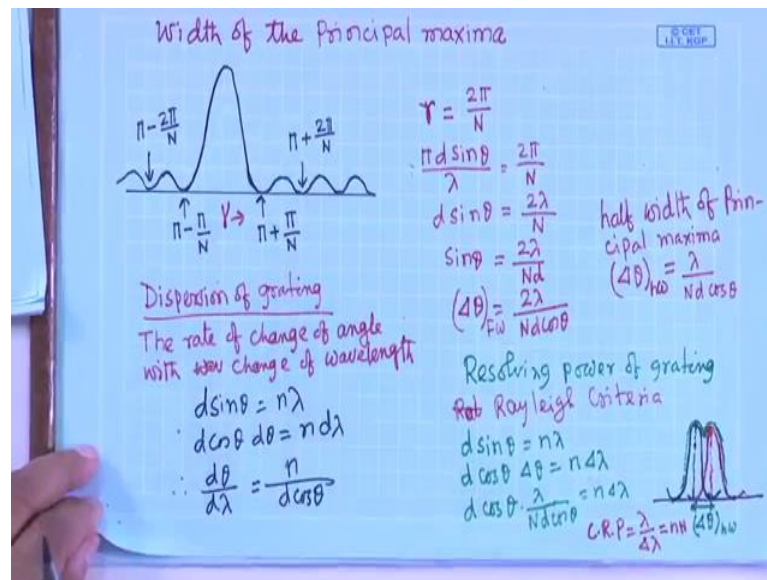 Width of the Principal maxima
© CET
I.I.T. KGP
π-2π/N
π+2π/N
π-π/N γ→ π+π/N
γ = 2π/N
πd sinθ/λ = 2π/N
d sinθ = 2λ/N
sinθ = 2λ/Nd
(Δθ)FW = 2λ/Nd cosθ
half width of Prin-
cipal maxima
(Δθ)hw = λ/Nd cosθ
Dispersion of grating
The rate of change of angle
with change of wavelength
dsinθ = nλ
dcosθ dθ = n dλ
∴ dθ/dλ = n/dcosθ
Resolving power of grating
Rayleigh Criteria
dsinθ = nλ
d cosθ Δθ = nΔλ
d cosθ · λ/Nd cosθ = nΔλ
C.R.P = λ/Δλ = nN (Δθ)hw